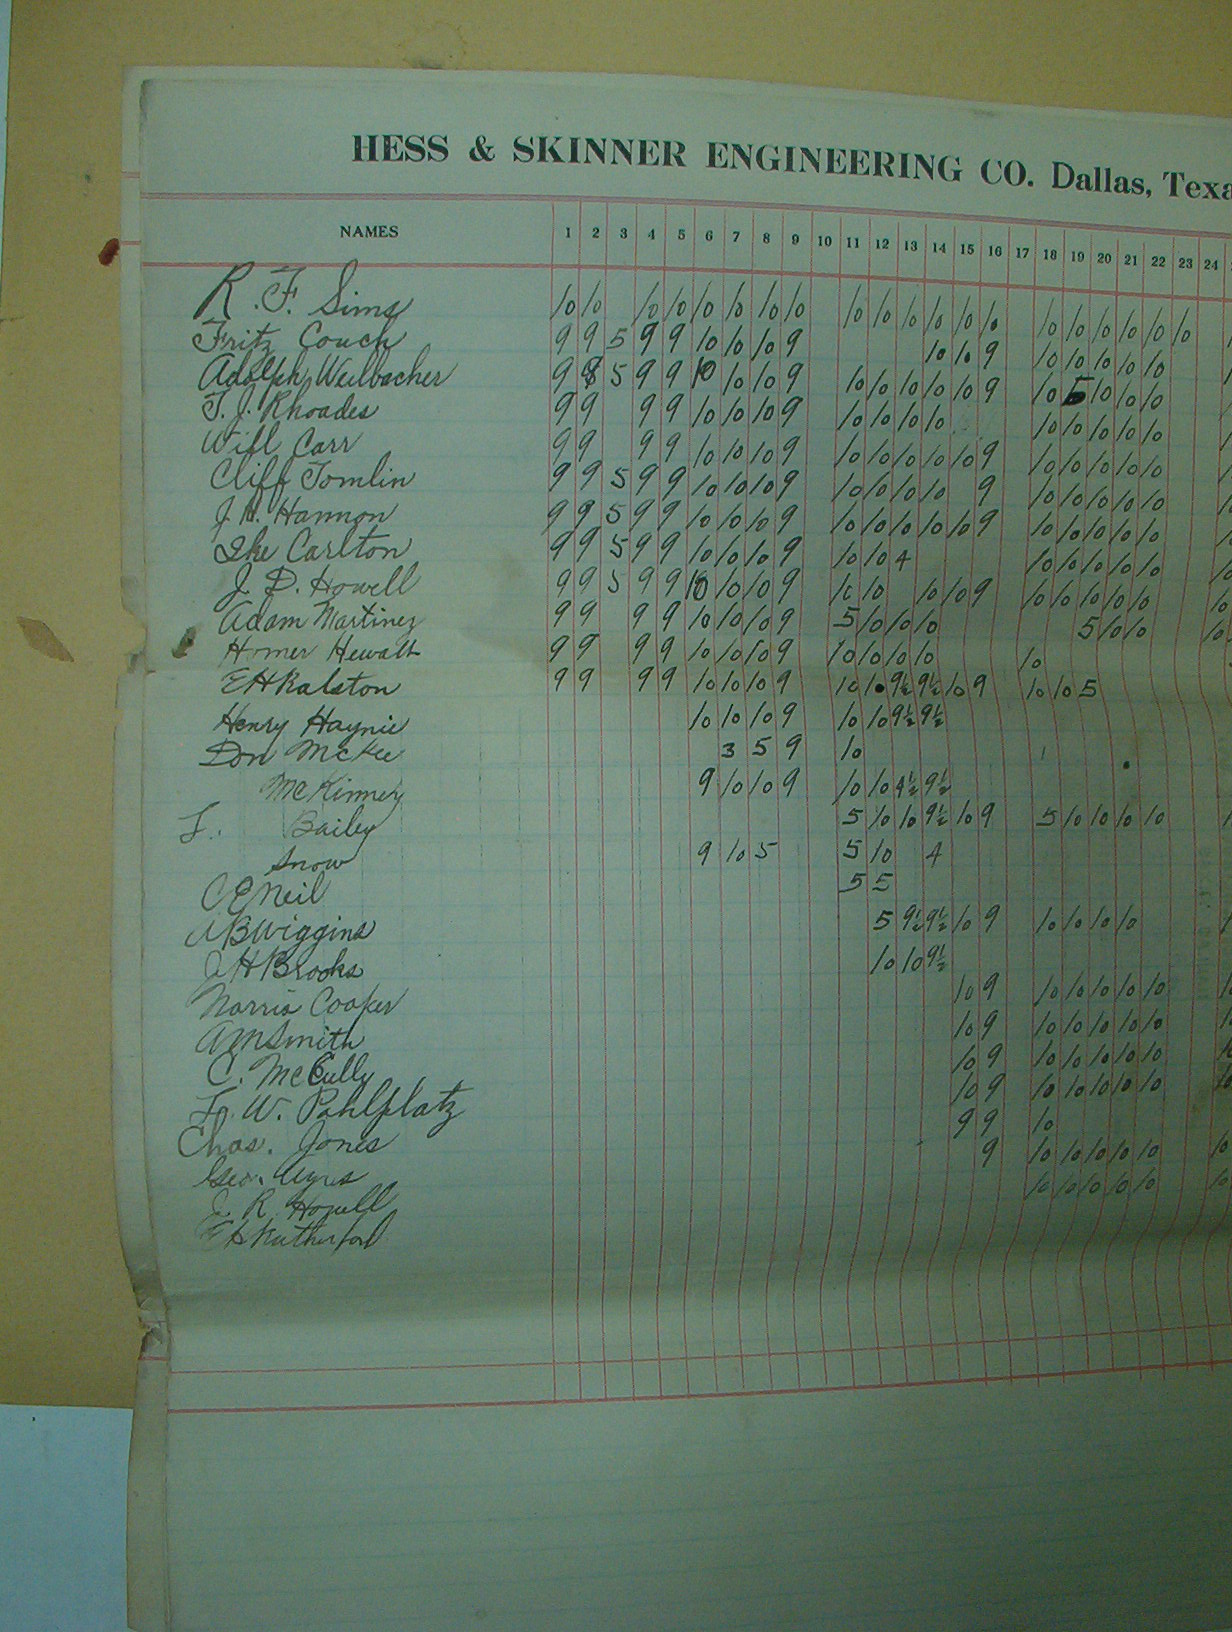 HESS & SKINNER ENGINEERING CO. Dallas, Texa
NAMES 1 2 3 4 5 6 7 8 9 10 11 12 13 14 15 16 17 18 19 20 21 22 23 24
R. F. Sims 10 10 10 10 10 10 10 10 10 10 10 10 10 10 10 10 10 10 10 10
Fritz Couch 9 9 5 9 9 10 10 10 9 10 10 9 10 10 10 10 10
Adolph Weilbacher 9 8 5 9 9 10 10 10 9 10 10 10 10 10 9 10 5 10 10 10
T. J. Rhoades 9 9 9 9 10 10 10 9 10 10 10 10 10 10 10 10 10
Will Carr 9 9 9 9 10 10 10 9 10 10 10 10 10 9 10 10 10 10 10
Cliff Tomlin 9 9 5 9 9 10 10 10 9 10 10 10 10 9 10 10 10 10 10
J. H. Hannon 9 9 5 9 9 10 10 10 9 10 10 10 10 10 9 10 10 10 10 10
Ike Carlton 9 9 5 9 9 10 10 10 9 10 10 4 10 10 10 10 10
J. D. Howell 9 9 5 9 9 10 10 10 9 10 10 10 10 9 10 10 10 10 10
Adam Martinez 9 9 9 9 10 10 10 9 5 10 10 10 5 10 10
Homer Hewatt 9 9 9 9 10 10 10 9 10 10 10 10 10
E H Ralston 9 9 9 9 10 10 10 9 10 10 9½ 9½ 10 9 10 10 5
Henry Haynie 10 10 10 9 10 10 9½ 9½
Don McKee 3 5 9 10
McKinney 9 10 10 9 10 10 9½ 9½
T. Bailey 5 10 10 9½ 10 9 5 10 10 10 10
Snow 9 10 5 5 10 4
C E Neil 5 5
A B Wiggins 5 9½ 9½ 10 9 10 10 10 10
J H Brooks 10 10 9½
Norris Cooper 10 9 10 10 10 10 10
A M Smith 10 9 10 10 10 10 10
C. McCully 10 9 10 10 10 10 10
F. W. Pahlplatz 10 9 10 10 10 10 10
Chas. Jones 9 9 10
Geo. Ayres 9 10 10 10 10 10
J. R. Howell 10 10 10 10 10
E H Rutherford